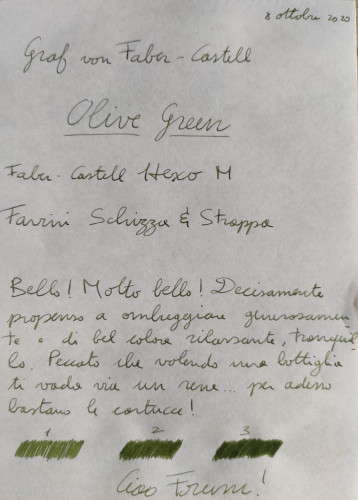 8 ottobre 2020
Graf von Faber-Castell
Olive Green
Faber-Castell Hexo M
Favini Schizza & Strappa
Bello! Molto bello! Decisamente
propenso a ombreggiare generosamen-
te e di bel colore rilassante, tranquil
lo. Peccato che volendo una bottiglia
ti vada via un rene... per adesso
bastano le cartucce!
1 2 3
Ciao Forum!